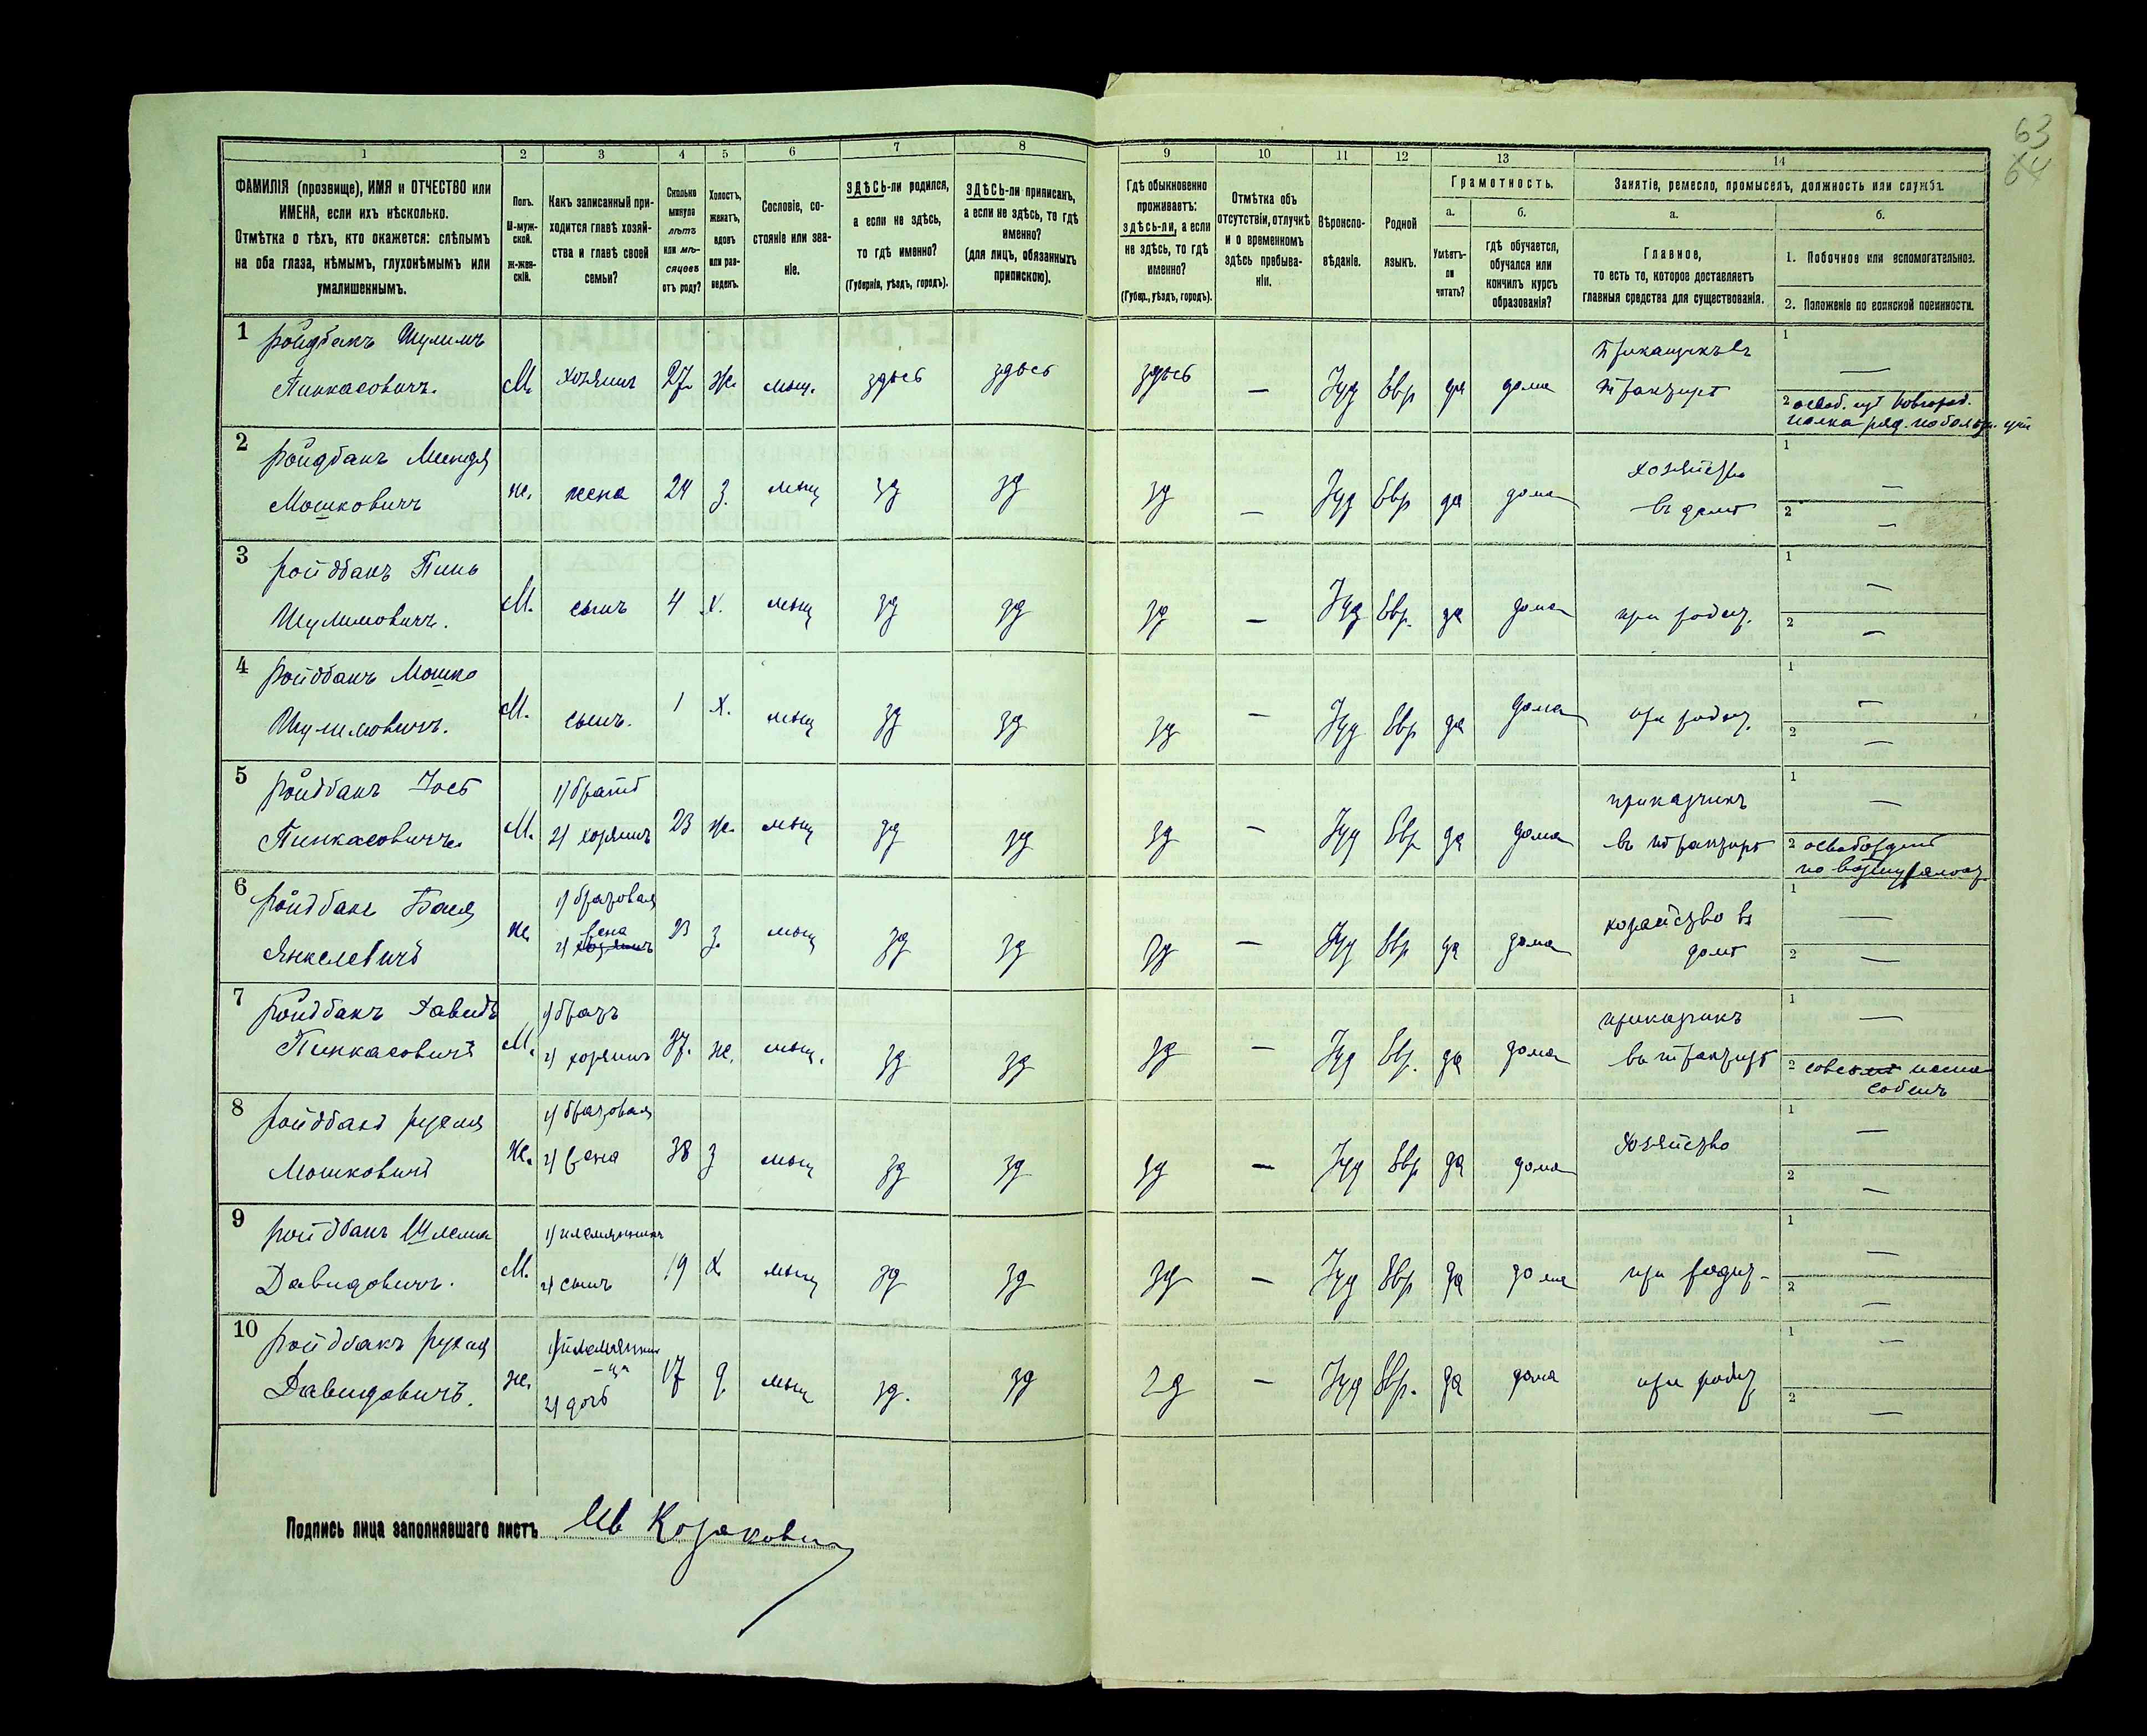 63
64
1 2 3 4 5 6 7 8 9 10 11 12 13 14
ФАМИЛІЯ (прозвище), ИМЯ и ОТЧЕСТВО или
ИМЕНА, если ихъ нѣсколько.
Отмѣтка о тѣхъ, кто окажется: слѣпымъ
на оба глаза, нѣмымъ, глухонѣмымъ или
умалишеннымъ.
Полъ.
М-муж-
ской.
Ж-жен-
скій.
Какъ записанный при-
ходится главѣ хозяй-
ства и главѣ своей
семьи?
Сколько
минуло
лѣтъ
или мѣ-
сяцевъ
отъ роду?
Холостъ,
женатъ,
вдовъ
или раз-
веденъ.
Сословіе, со-
стояніе или зва-
ніе.
ЗДѢСЬ-ли родился,
а если не здѣсь,
то гдѣ именно?
(Губернія, уѣздъ, городъ).
ЗДѢСЬ-ли приписанъ,
а если не здѣсь, то гдѣ
именно?
(для лицъ, обязанныхъ
припискою).
Гдѣ обыкновенно
проживаетъ:
здѣсь-ли, а если
не здѣсь, то гдѣ
именно?
(Губер., уѣздъ, городъ).
Отмѣтка объ
отсутствіи, отлучкѣ
и о временномъ
здѣсь пребыва-
ніи.
Вѣроиспо-
вѣданіе.
Родной
языкъ.
Грамотность.
а.
Умѣетъ-
ли
читать?
б.
гдѣ обучается,
обучался или
кончилъ курсъ
образованія?
Занятіе, ремесло, промыселъ, должность или служба.
а.
Главное,
то есть то, которое доставляетъ
главныя средства для существованія.
б.
1. Побочное или вспомогательное.
2. Положеніе по воинской повинности.
1 Ройдбакъ Шулимъ
Пинкасовичъ. М. хозяинъ 27 ж. мѣщ. здѣсь здѣсь здѣсь — Іуд Евр да дома Приказчикъ въ
трактирѣ 1 —
2 освоб.
полка ряд.
2 Ройдбакъ Менця
Мошковичъ ж. жена 24 з. мѣщ зд зд зд — Іуд Евр да дома хозяйство
въ домѣ 1 —
2 —
3 Ройдбакъ Пинь
Шулимовичъ. М. сынъ 4 х. мѣщ зд зд зд — Іуд Евр. да дома при родит. 1 —
2 —
4 Ройдбакъ Мошко
Шулимовичъ. М. сынъ. 1 х. мѣщ зд зд зд — Іуд Евр да дома при родит. 1 —
2 —
5 Ройдбакъ Іось
Пинкасовичъ. М. 1) братъ
2) хозяинъ 23 ж. мѣщ зд зд зд — Іуд Евр да дома приказчикъ
въ трактирѣ 1 —
2 освобожденъ
по
6 Ройдбакъ Бася
Янкелевичъ ж. 1) братовая
2) жена 23 з. мѣщ зд зд зд — Іуд Евр да дома хозайство въ
домѣ 1 —
2 —
7 Ройдбакъ Давидъ
Пинкасовичъ М. 1) братъ
2) хозяинъ 37. ж. мѣщ. зд зд зд — Іуд Евр. да дома приказчикъ
въ трактирѣ 1 —
2
8 Ройдбакъ Рухля
Мошковичъ ж. 1) братовая
2) жена 38 з мѣщ зд зд зд — Іуд Евр да дома Хозяйство 1 —
2 —
9 Ройдбакъ Шлема
Давидовичъ. М. 1) племянникъ
2) сынъ 19 х. мѣщ зд зд зд — Іуд Евр да дома при родит. 1 —
2 —
10 Ройдбакъ Рухля
Давидовичъ. ж. 1) племянни
-ца
2) дочь 17 д. мѣщ зд. зд зд — Іуд Евр. да дома при родит 1 —
2 —
Подпись лица заполнявшаго листъ